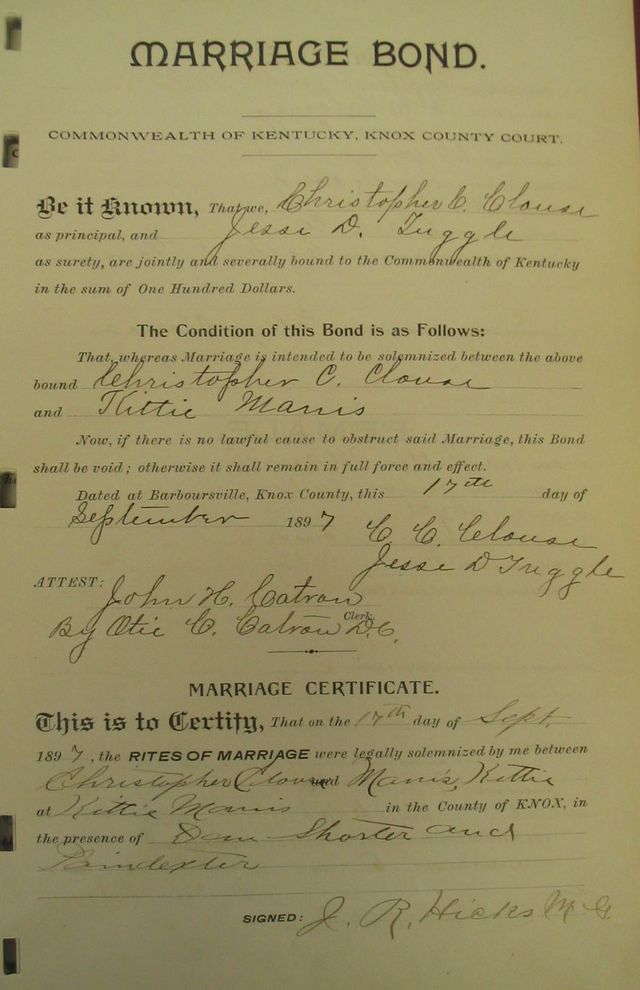 MARRIAGE BOND.
COMMONWEALTH OF KENTUCKY, KNOX COUNTY COURT.
Be it Known, That we, Christopher C. Clouse
as principal, and Jesse D. Tuggle
as surety, are jointly and severally bound to the Commonwealth of Kentucky
in the sum of One Hundred Dollars.
The Condition of this Bond is as Follows:
That, whereas Marriage is intended to be solemnized between the above
bound Christopher C. Clouse
and Kittie Manis
Now, if there is no lawful cause to obstruct said Marriage, this Bond
shall be void; otherwise it shall remain in full force and effect.
Dated at Barboursville, Knox County, this 17th day of
September 1897
C. C. Clouse
Jesse D Tuggle
ATTEST:
John H. Catron
Clerk.
By Otie C. Catron D.C.
MARRIAGE CERTIFICATE.
This is to Certify, That on the 17th day of Sept.
1897, the RITES OF MARRIAGE were legally solemnized by me between
Christopher Clouse and Manis, Kittie
at Kittie Manis in the County of KNOX, in
the presence of Shorter and
Poindexter
SIGNED: J. R. Hicks M G